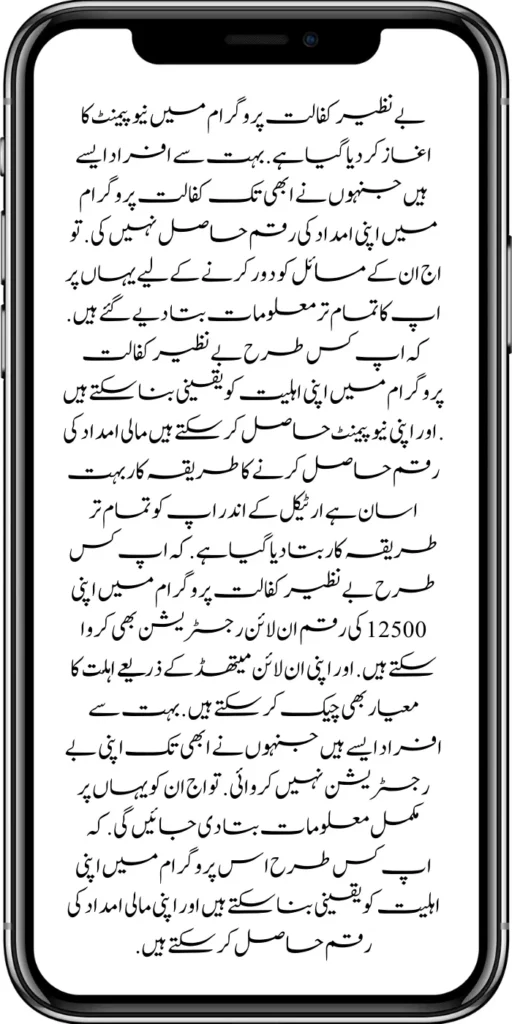 بے نظیر کفالت پروگرام میں نیو پیمنٹ کا
اغاز کر دیا گیا ہے. بہت سے افراد ایسے
ہیں جنہوں نے ابھی تک کفالت پروگرام
میں اپنی امداد کی رقم حاصل نہیں کی. تو
اج ان کے مسائل کو دور کرنے کے لیے یہاں پر
اپ کا تمام تر معلومات بتا دیے گئے ہیں.
کہ اپ کس طرح بے نظیر کفالت
پروگرام میں اپنی اہلیت کو یقینی بنا سکتے ہیں
.اور اپنی نیو پیمنٹ حاصل کر سکتے ہیں مالی امداد کی
رقم حاصل کرنے کا طریقہ کار بہت
اسان ہے ارٹیکل کے اندر اپ کو تمام تر
طریقہ کار بتا دیا گیا ہے. کہ اپ کس
طرح بے نظیر کفالت پروگرام میں اپنی
12500 کی رقم ان لائن رجسٹریشن بھی کروا
سکتے ہیں. اور اپنی ان لائن میتھڈ کے ذریعے اہلت کا
معیار بھی چیک کر سکتے ہیں. بہت سے
افراد ایسے ہیں جنہوں نے ابھی تک اپنی بے
رجسٹریشن نہیں کروائی. تو اج ان کو یہاں پر
مکمل معلومات بتا دی جائیں گی. کہ
اپ کس طرح اس پروگرام میں اپنی
اہلیت کو یقینی بنا سکتے ہیں اور اپنی مالی امداد کی
رقم حاصل کر سکتے ہیں.